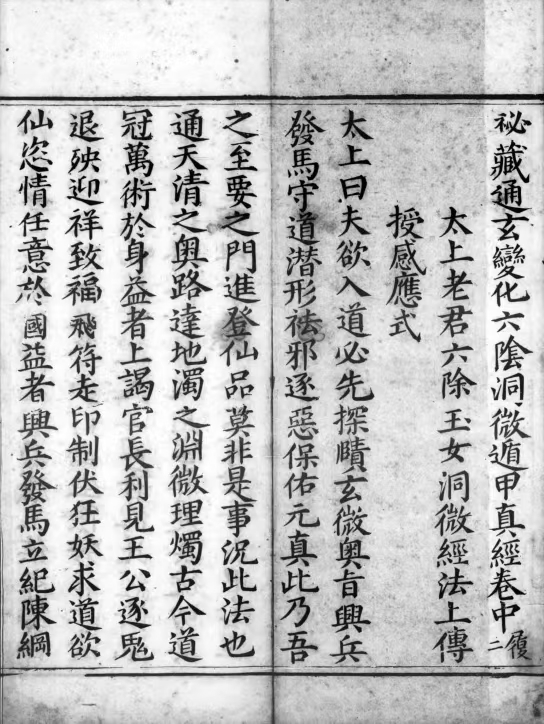 祕藏通玄變化六陰洞微遁甲真經卷中 覆二
太上老君六陰玉女洞微經法上傳
授感應式
太上曰夫欲入道必先探賾玄微奧旨興兵
發馬守道潜形祛邪逐惡保佑元真此乃吾
之至要之門進登仙品莫非是事況此法也
通天清之奥路達地濁之淵微理燭古今道
冠萬術於身益者上謁官長利見王公逐鬼
退殃迎祥致福飛符走印制伏狂妖求道欲
仙恣情任意於國益者興兵發馬立紀陳綱